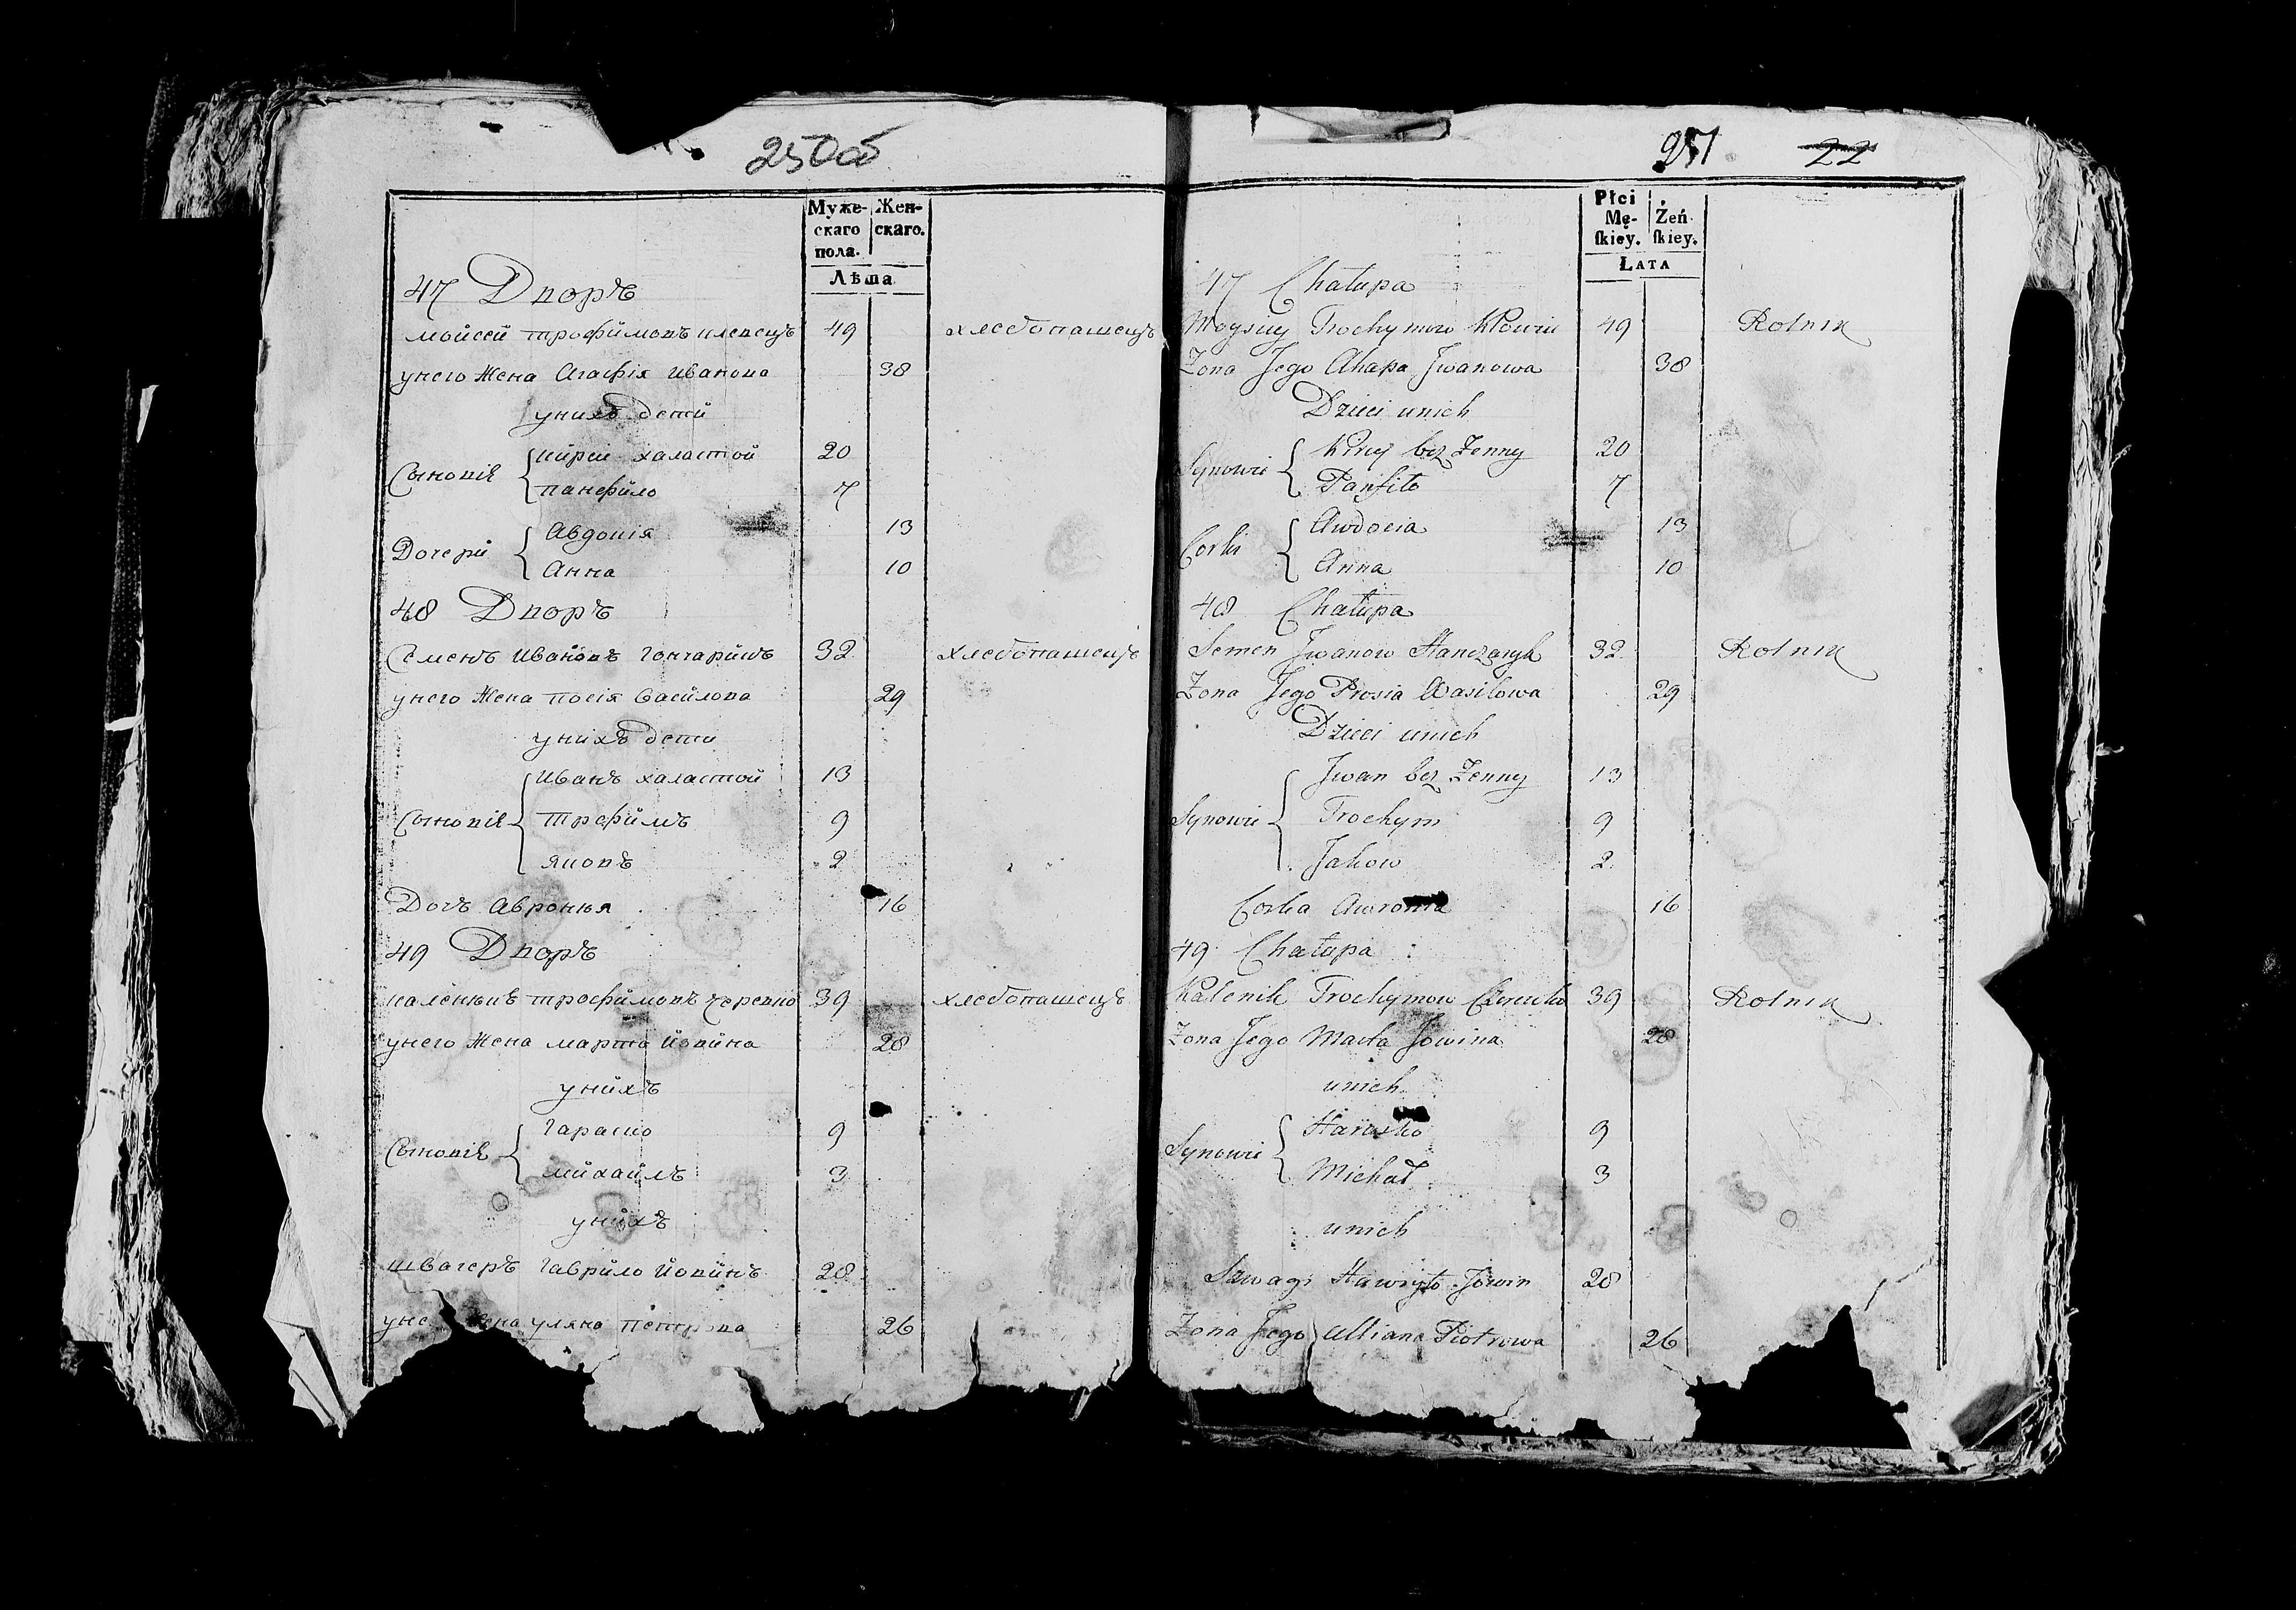 250об
Муже-
скаго
пола.
Жен-
скаго.
Лѣта
47 Дворъ
мойсей трофимовъ клевецъ 49 хлебопашецъ
унего жена Агафія иванова 38
унихъ дети
Сыновіѣ
кирей халастой 20
панфило 7
Дочери
Авдоція 13
Анна 10
48 Дворъ
Семенъ ивановъ гончарикъ 32 хлебопашецъ
унего жена посія василова 29
унихъ дети
Сыновіѣ
иванъ халастой 13
трофимъ 9
яковъ 2
Дочъ Авронья 16
49 Дворъ
каленикъ трофимовъ черевко 39 хлебопашецъ
унего жена марта йовина 28
унихъ
Сыновіѣ
гараско 9
михайлъ 3
унихъ
швагеръ гаврило йовинъ 28
уне жена уляна петрова 26
251 22
Płci
Mę-
skiey.
Żeń-
skiey.
Lata
47 Chałupa
Moysiey Trochymow 49 Rolnik
Zona Jego Ahapa Jwanowa 38
Dzieci unich
Synowie
Kirey bez Zenny 20
Panfiło 7
Corki
Awdocia 13
Anna 10
48 Chałupa
Semen Jwanow Hanczaryk 32 Rolnik
Zona Jego Prosia Wasilowa 29
Dzieci unich
Synowie
Jwan bez Zenny 13
Trochym 9
Jakow 2
Corka Awronia 16
49 Chałupa
Kalenik Trochymow Czerewko 39 Rolnik
Zona Jego Marta Jowina 28
unich
Synowie
Harasko 9
Michał 3
unich
Szwagr Hawryło Jowin 28
Zona Jego Ulliana Piotrowa 26